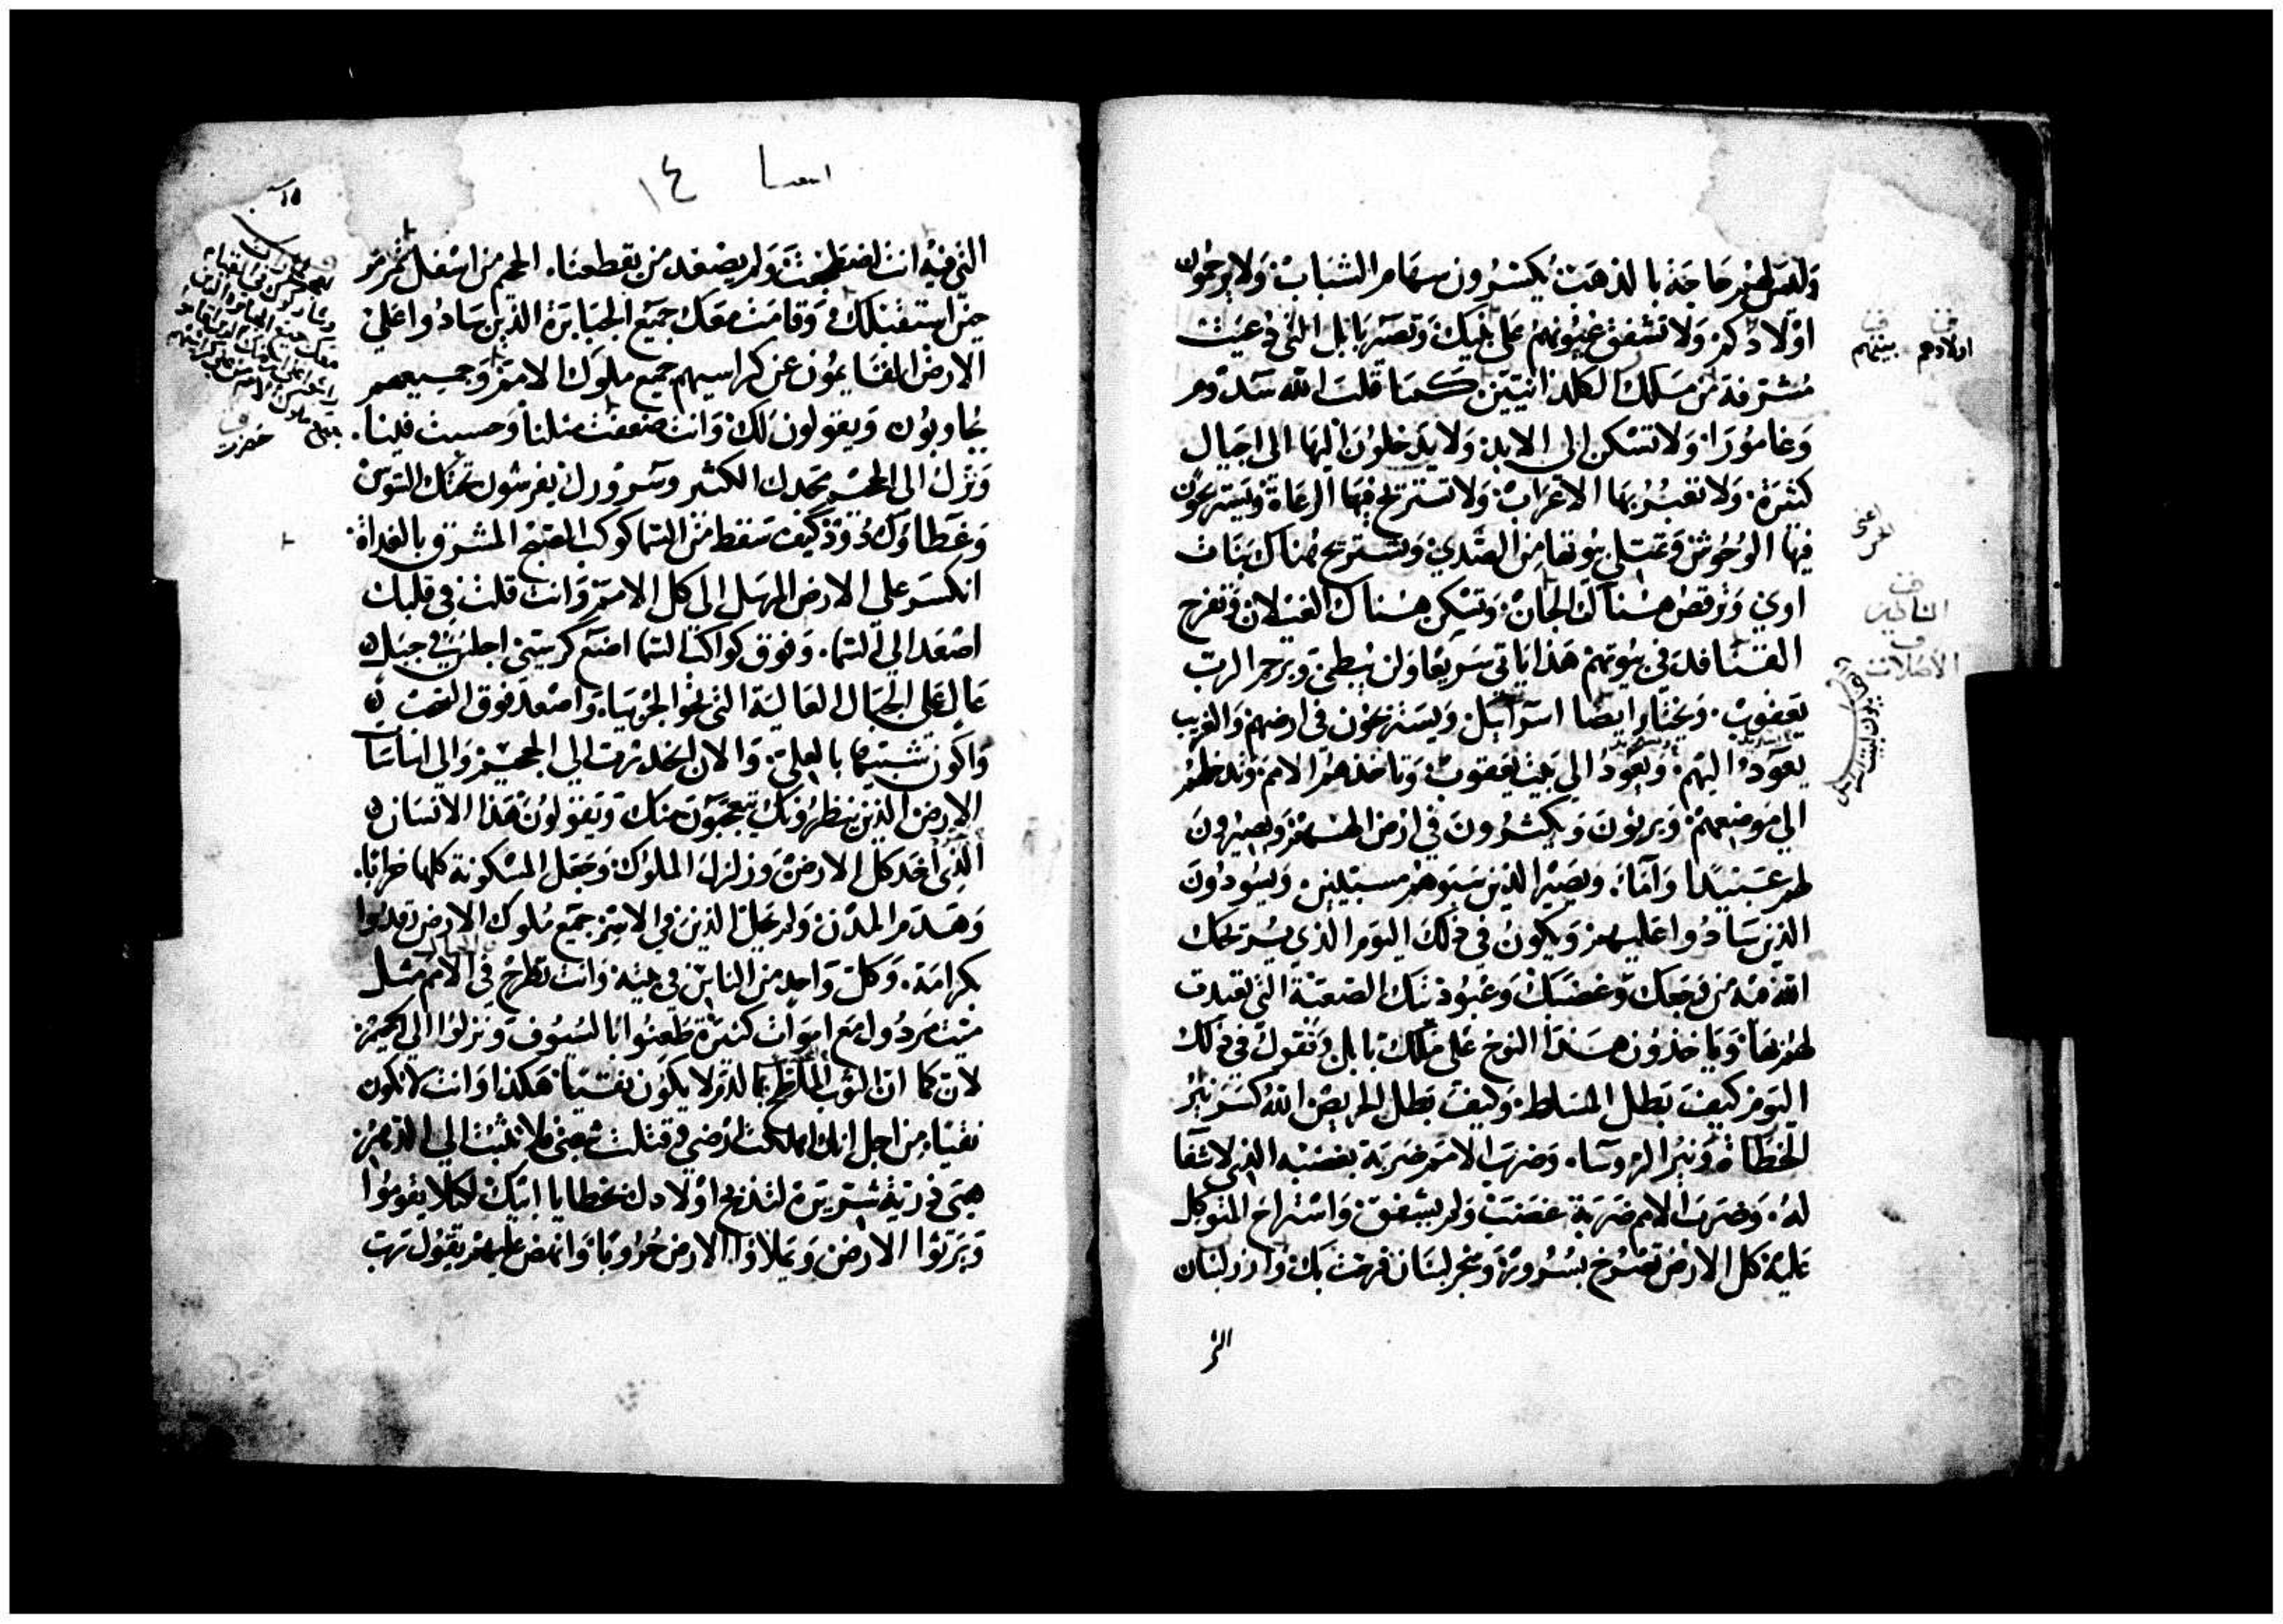 وليس لهم حاجة بالذهب يكسرون سهام الشباب ولا يرحمون
اولادكم ولا تشفق عيونهم على بنيك وتصير بابل التى دعيت
مشرفة من ملك الكلدانيين كما قلب الله سدوم
وغامورا ولا تسكن الى الابد ولا يدخلون اليها الى اجيال
كثيرة ولا تعبر بها الاعراب ولا تستريح فيها الرعاة ويستريحون
فيها الوحوش وتمتلى بيوتها من الصدي وتستريح هناك بنات
اوي وترقص هناك الجان وتسكن هناك الغيلان وتفرخ
القنافد فى بيوتهم هذا ياتي سريعا ولن يبطئ ويرحم الرب
يعقوب ويختار ايضا اسرايل ويستريحون فى ارضهم والغريب
يعود اليهم ويعود الى بيت يعقوب وتاخذهم الامم وتدخلهم
الى موضعهم ويرثون ويكثرون في ارض الههم ويصيرون
لهم عبيدا وآماء ويصير الذين سبوهم مسبيين ويسودون
الذين سادوا عليهم ويكون في ذلك اليوم الذي يريحك
الله فيه من وجعك وغضبك وعبوديتك الصعبة التى تعبدت
لهم بها وياخذون هذا النوح على ملك بابل وتقول في ذلك
اليوم كيف بطل المسلط وكيف بطل الحريص الله كسر نير
الخطاة ونير الروسآء وضرب الامم ضربة بغضبه الذي لا شفا
له وضرب الامم ضربة غضب ولم يشفق واستراح المتوكل
عليه كل الارض تصرخ بسرور وشجر لبنان فرحت بك وارز لبنان
الار
اولادهم بينهم
اعنى
الاصلات
اسعيا ١٤
١٥
التى فيه انت اضطجعت ولم يصعد من يقطعنا الجحيم من اسفل تمرمر
حين استقبلك وقامت معك جميع الجبابرة الذين سادوا على
الارض القايمون عن كراسيهم جميع ملوك الامم وجميعهم
يجاوبون ويقولون لك وانت ضعفت مثلنا وحسبت فينا
ونزل الى الجحيم مجدك الكثير وسرورك يفرشون تحتك السوس
وغطاوك دود كيف سقط من السما كوكب الصبح المشرق بالغداة
انكسر على الارض المرسل الى كل الامم وانت قلت في قلبك
اصعد الي السما وفوق كواكب السما اضع كرسيي اجلس في جبل
عال على الجبال العالية التى نحو الجربيا واصعد فوق السحب
واكون شبيها بالعلي والان انحدرت الي الجحيم والي اساسات
الارض الذين ينظرونك يتعجبون منك ويقولون هذا الانسان
الذي احد كل الارض وزلزل الملوك وجعل المسكونة كلها خرابا
وهدم المدن ولم يحل الذين في الاسر جميع ملوك الارض رقدوا
بكرامة وكل واحد من الناس في بيته وانت تطرح في الامم مثل
ميت مردول مع اموات كثيرة طعنوا بالسيوف ونزلوا الى الجحيم
لان كما ان الثوب الملطخ بالدم لا يكون نقيا هكذا وانت لا تكون
نقيا من اجل انك اهلكت ارضي وقتلت شعبى فلا تلبث الي الدهر
هيى ذرية شريرة لتذبح اولادك بخطايا ابيك لكلا يقوموا
ويرثوا الارض ويملاوا الارض حروبا وانهض عليهم يقول رب